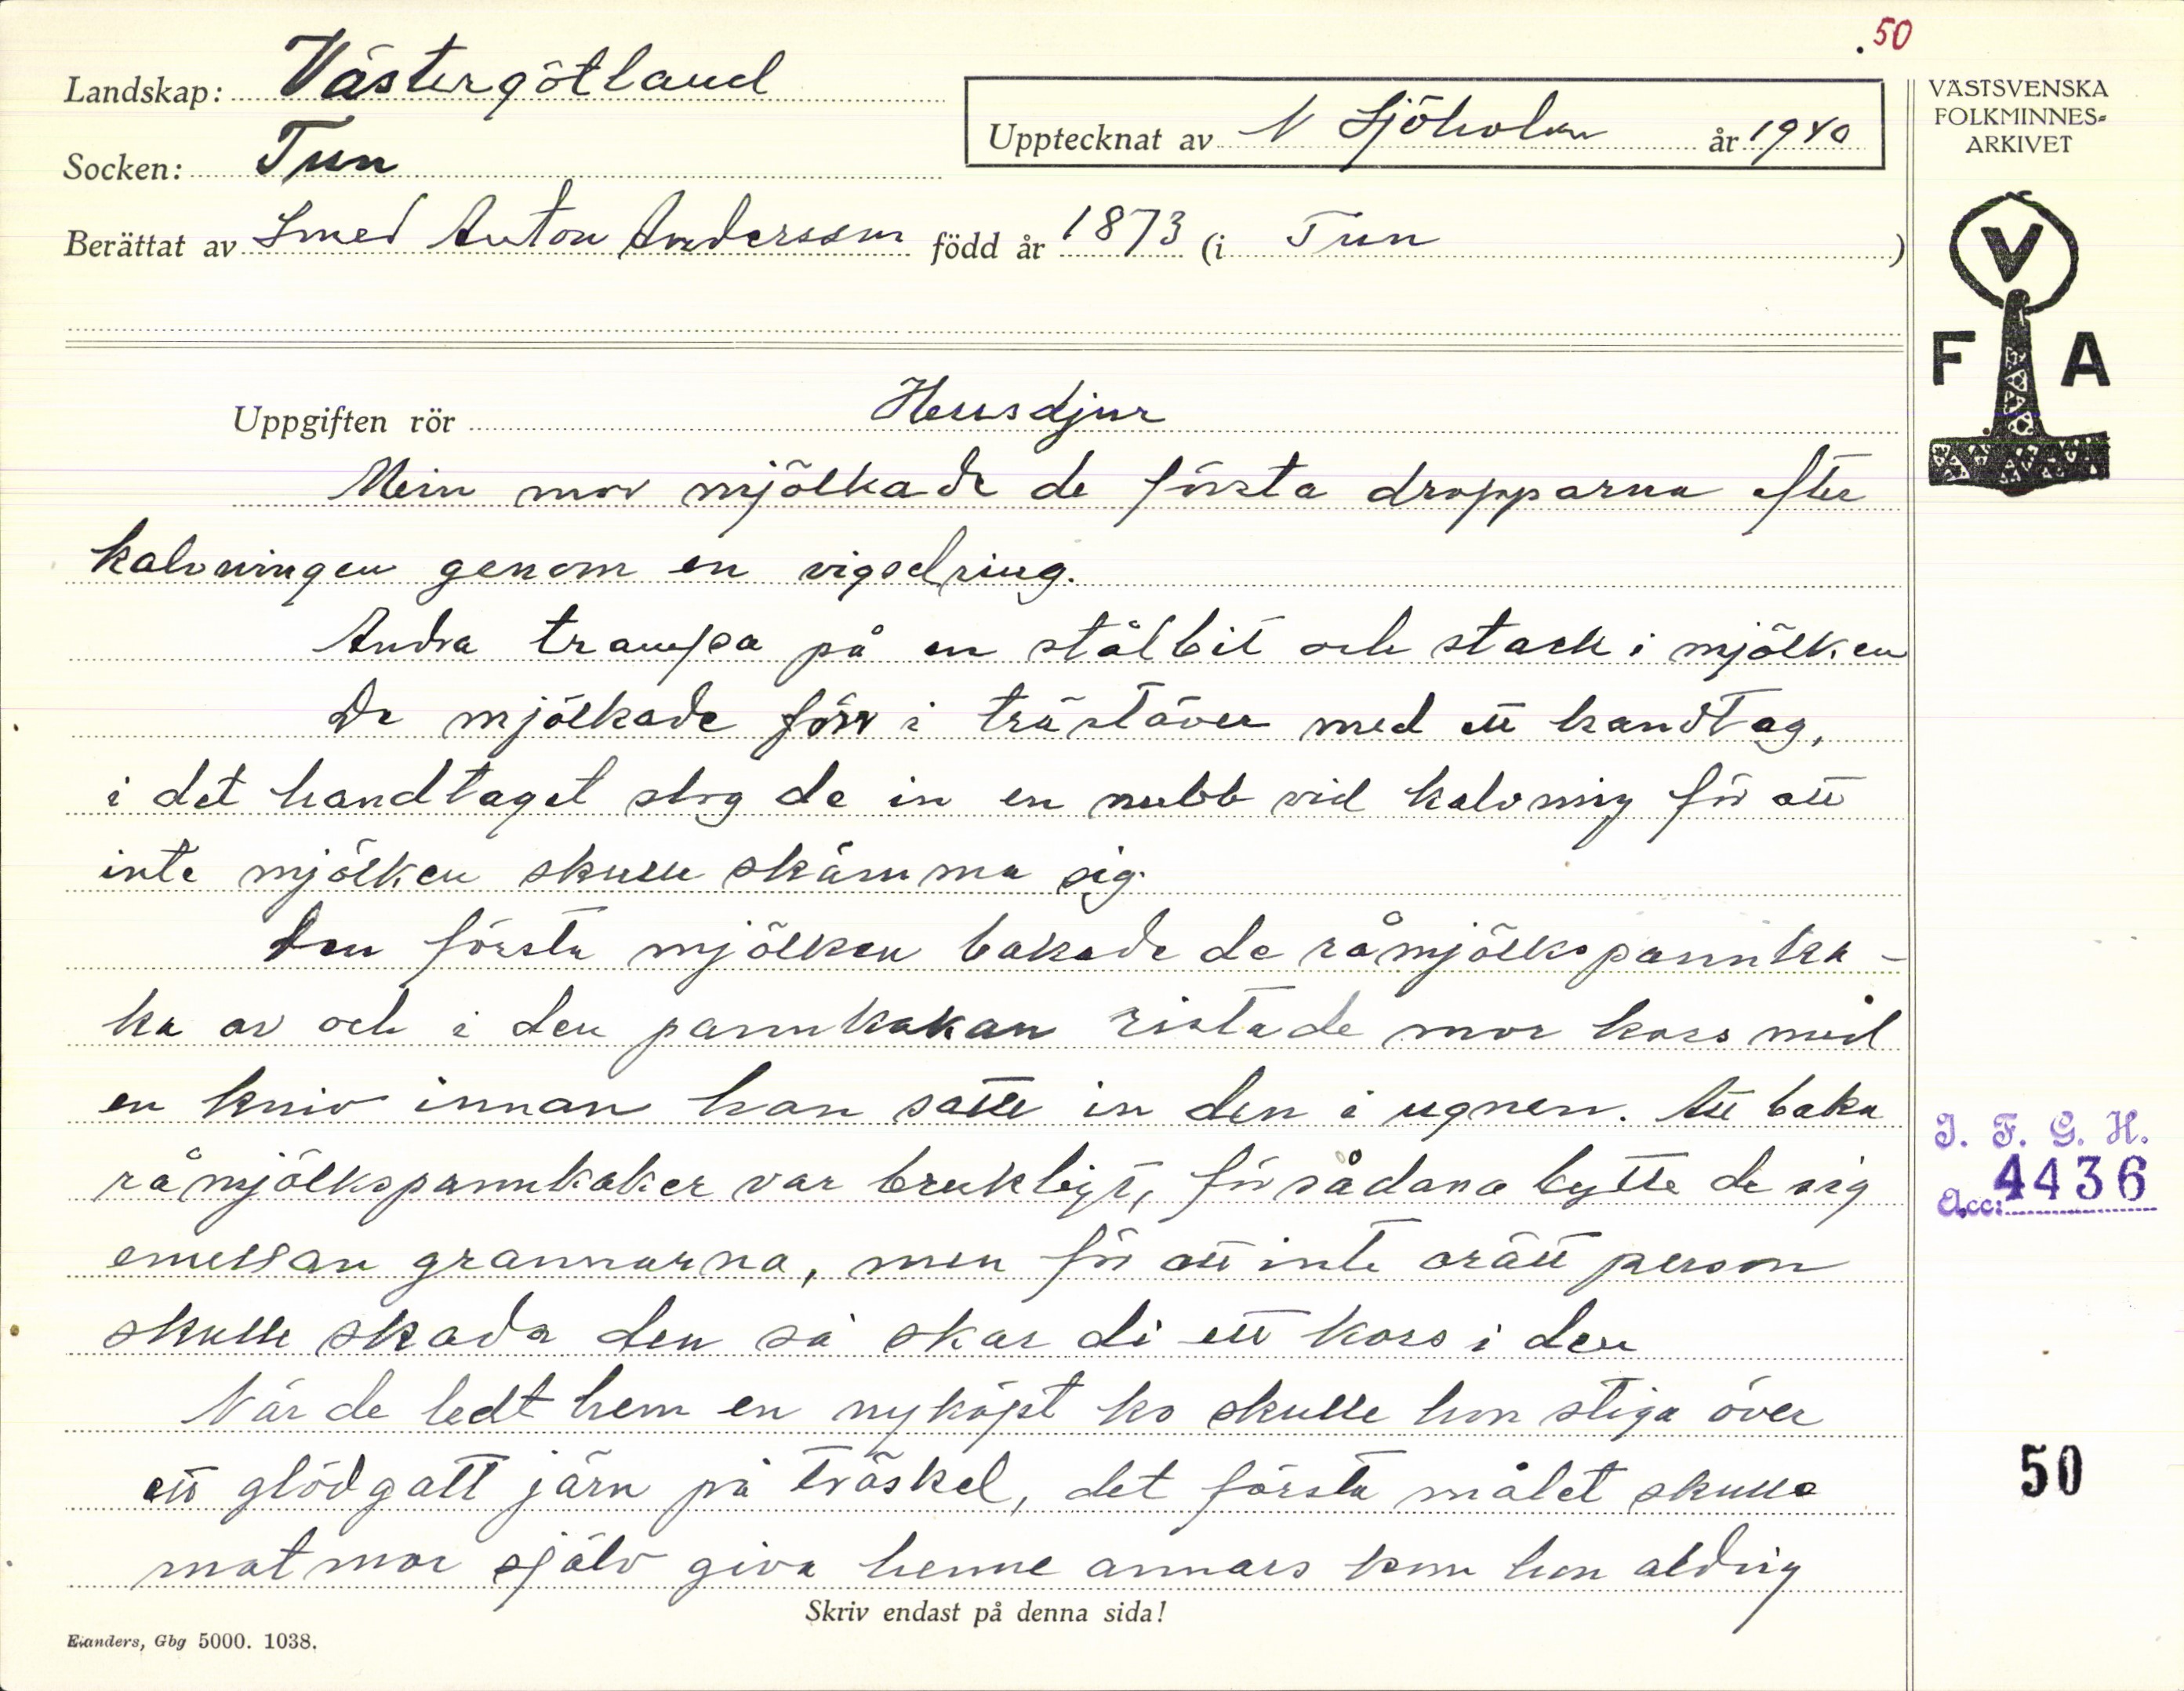 50
Landskap: Västergötland
Socken: Tun
Upptecknat av N Sjöholm år 1940
Berättat av Smed Anton Andersson född år 1873 (i Tun )
VÄSTSVENSKA
FOLKMINNES=
ARKIVET
V
F A
Uppgiften rör Husdjur
Min mor mjölkade de första dropparna efter
kalvningen genom en vigselring.
Andra trampa på en stålbit och stack i mjölken
De mjölkade förr i trästäver med ett handtag,
i det handtaget slog de in en nubb vid kalvning för att
inte mjölken skulle skämma sig.
Den första mjölken bakade de råmjölkspannka-
ka av och i den pannkakan ristade mor kors med
en kniv innan hon satte in den i ugnen. Att baka
råmjölkspannkakor var brukligt, för sådana bytte de sig
emellan grannarna, men för att inte orätt person
skulle skada den så skar di ett kors i den
När de ledt hem en nyköpt ko skulle hon stiga över
ett glödgatt järn på tröskel, det första målet skulle
matmor själv giva henne annars kom hon aldrig
I. F. G. H.
Acc: 4436
50
Skriv endast på denna sida!
Elanders, Gbg 5000. 1038.